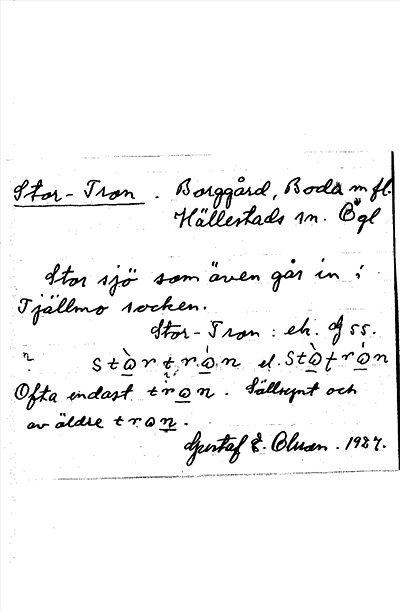 Stor-Tron. Borggård, Boda m fl.
Hällestads sn. Ögl
Stor sjö som även går in i
Tjällmo socken.
Stor-Tron: ek. Gss.
stòrtrón el. stòtrón
Ofta endast tròn. Sällsynt och
av äldre tron.
Gustaf E. Olsson. 1927.